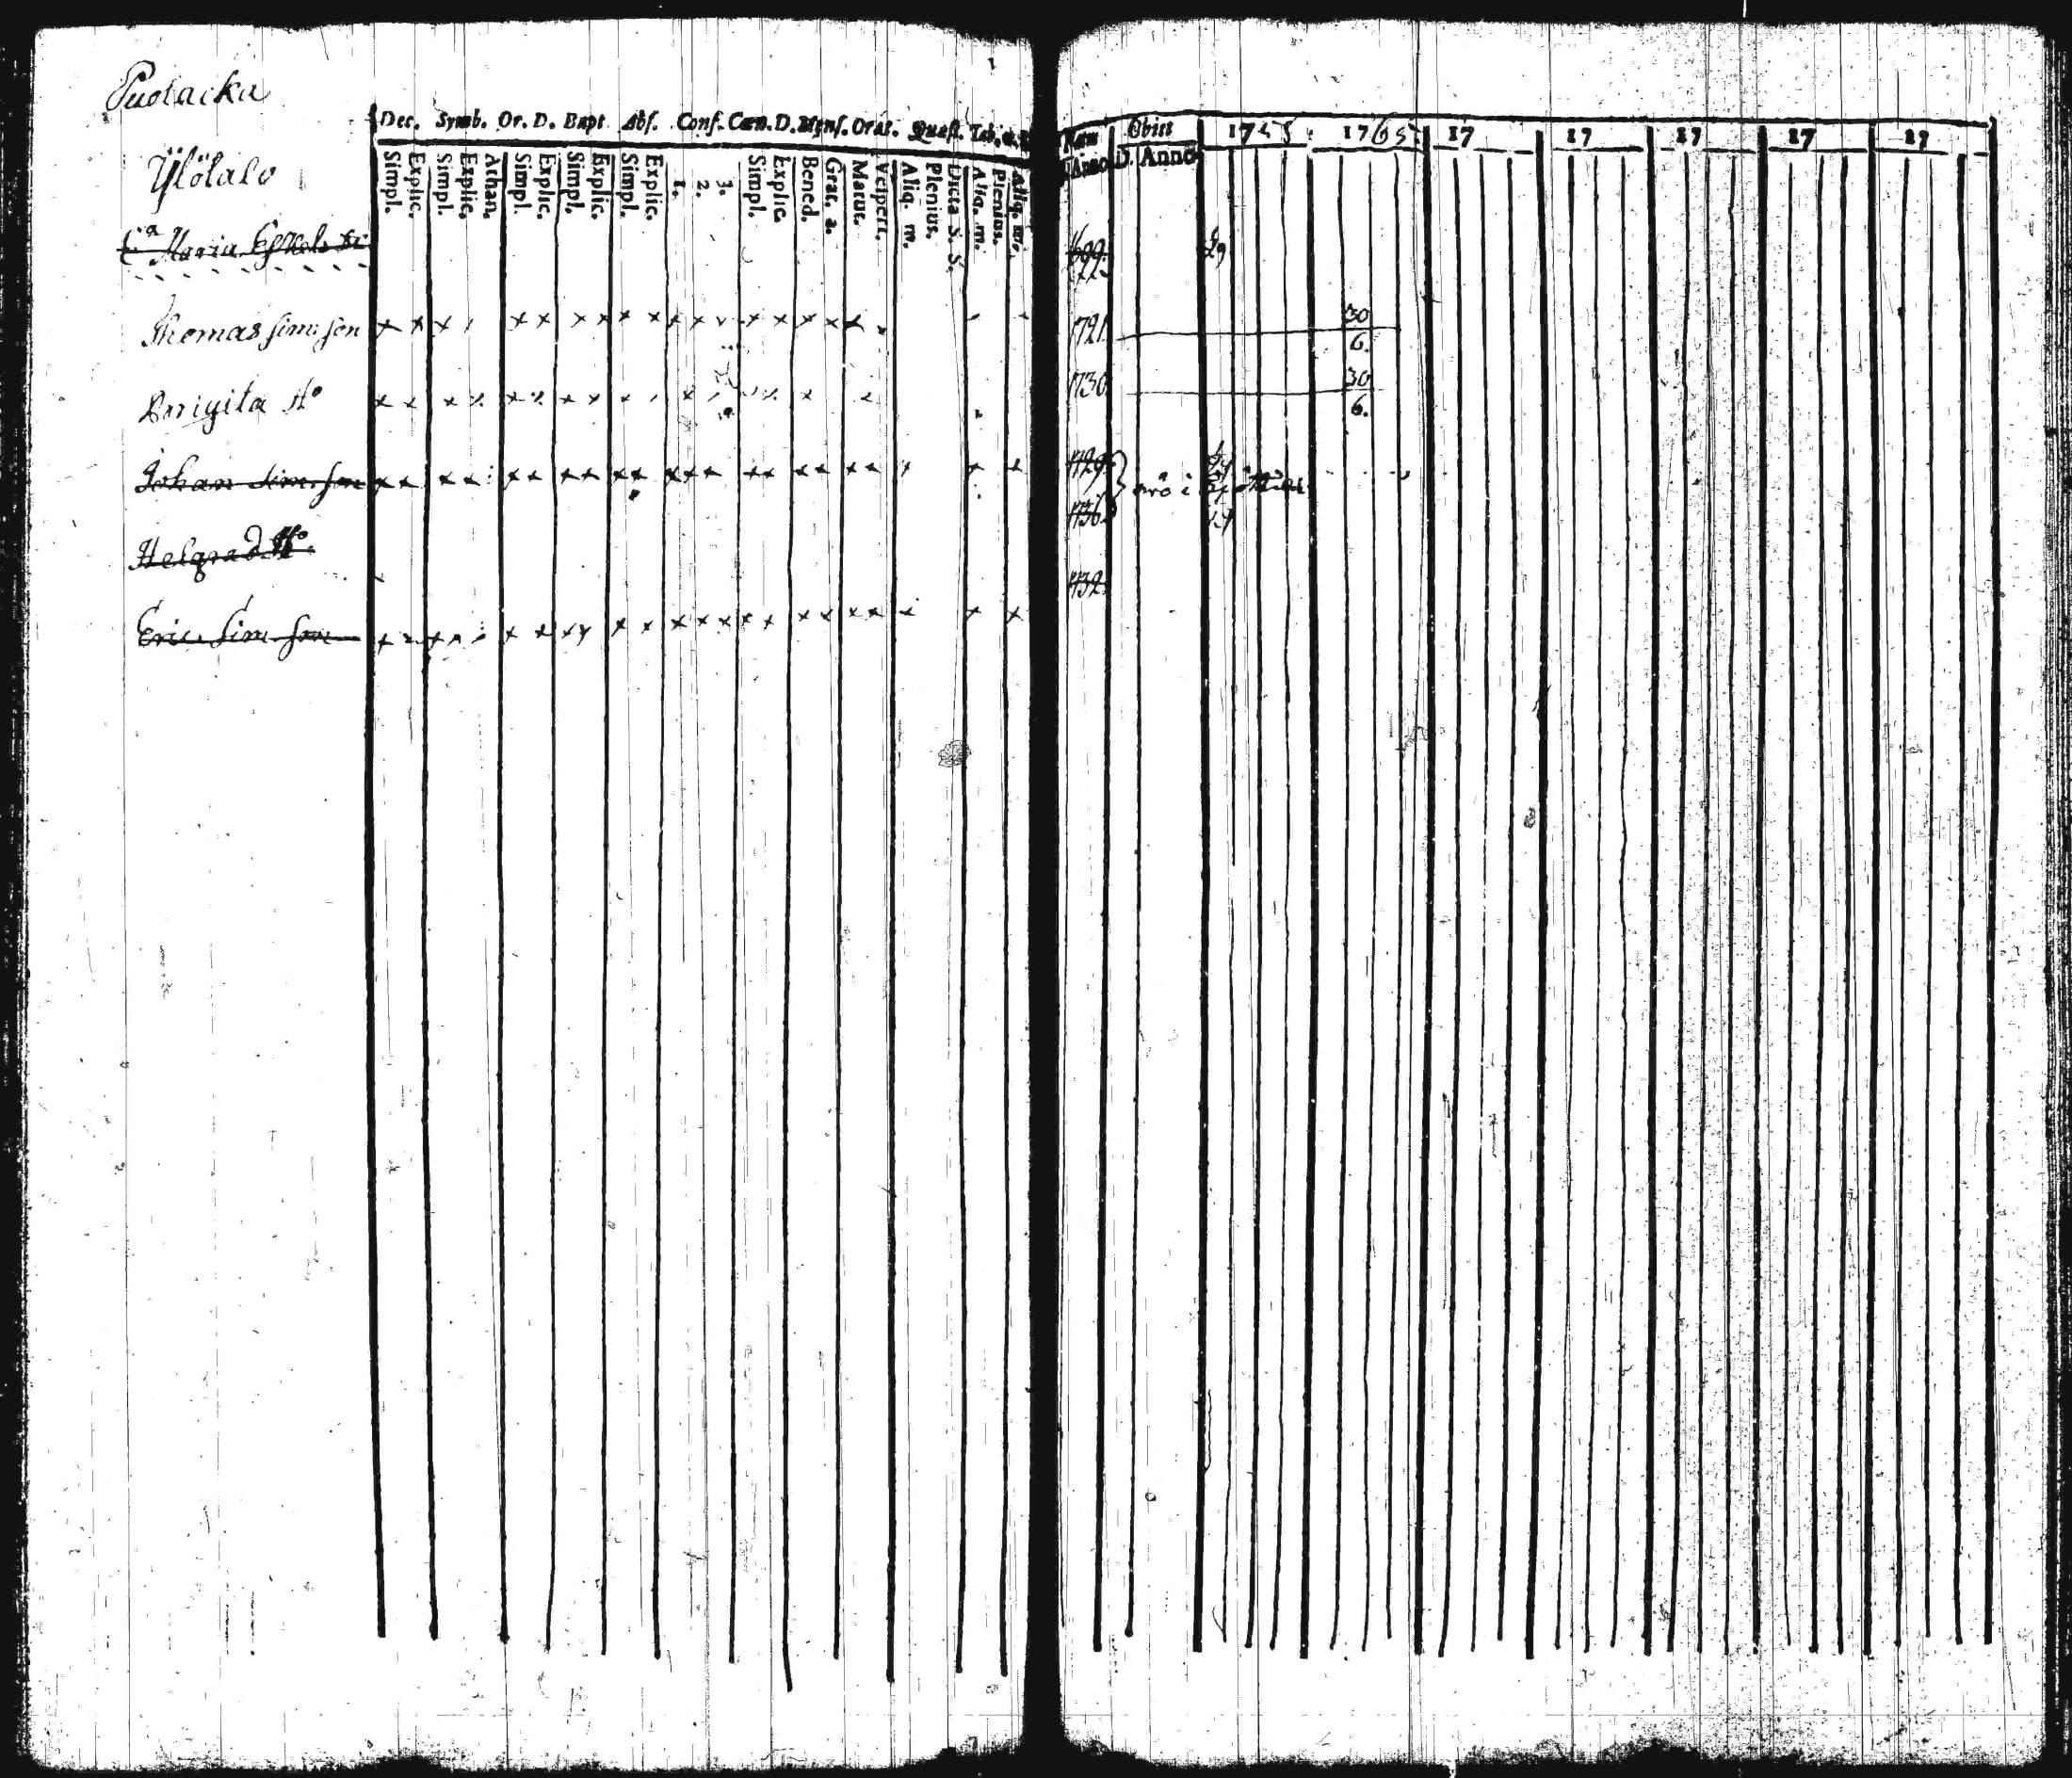 Puolacka
Dec. Symb. Or. D. Bapt Abs. Conf. Cœn. D. Mens. Orat. Quæst. Tab.
Simpl. Explic. Simpl. Explic. Athan. Simpl. Explic. Simpl. Explic. Simpl. Explic. 1. 2. 3. Simpl. Explic. Bened. Grat. a. Matut. Vespert. Aliq. m. Plenius. Dicta S. S. Aliq. m. Plenius. Aliq. m.
Nat. Obiit 17 1765 17 17 17 17 17
Anno D. Anno
Ylötalo
Maria 1699
Thomas Sim: son 1721. 30 6.
Brigita Ho 1730 30 6.
Johan Sim: son 1729
Helgred Ho 1736
Eric Sim: son 1732